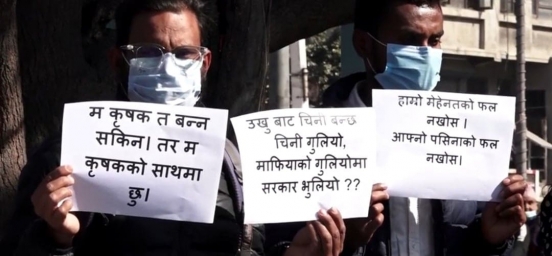 म कृषक त बन्न
सकिन। तर म
कृषकको साथमा
छु।
उखु बाट चिनी बन्छ
चिनी गुलियो,
माफियाको गुलियोमा
सरकार भुलियो ??
हाम्रो मेहेनतको फल
नखोस ।
आफ्नो पसिनाको फल
नखोस।